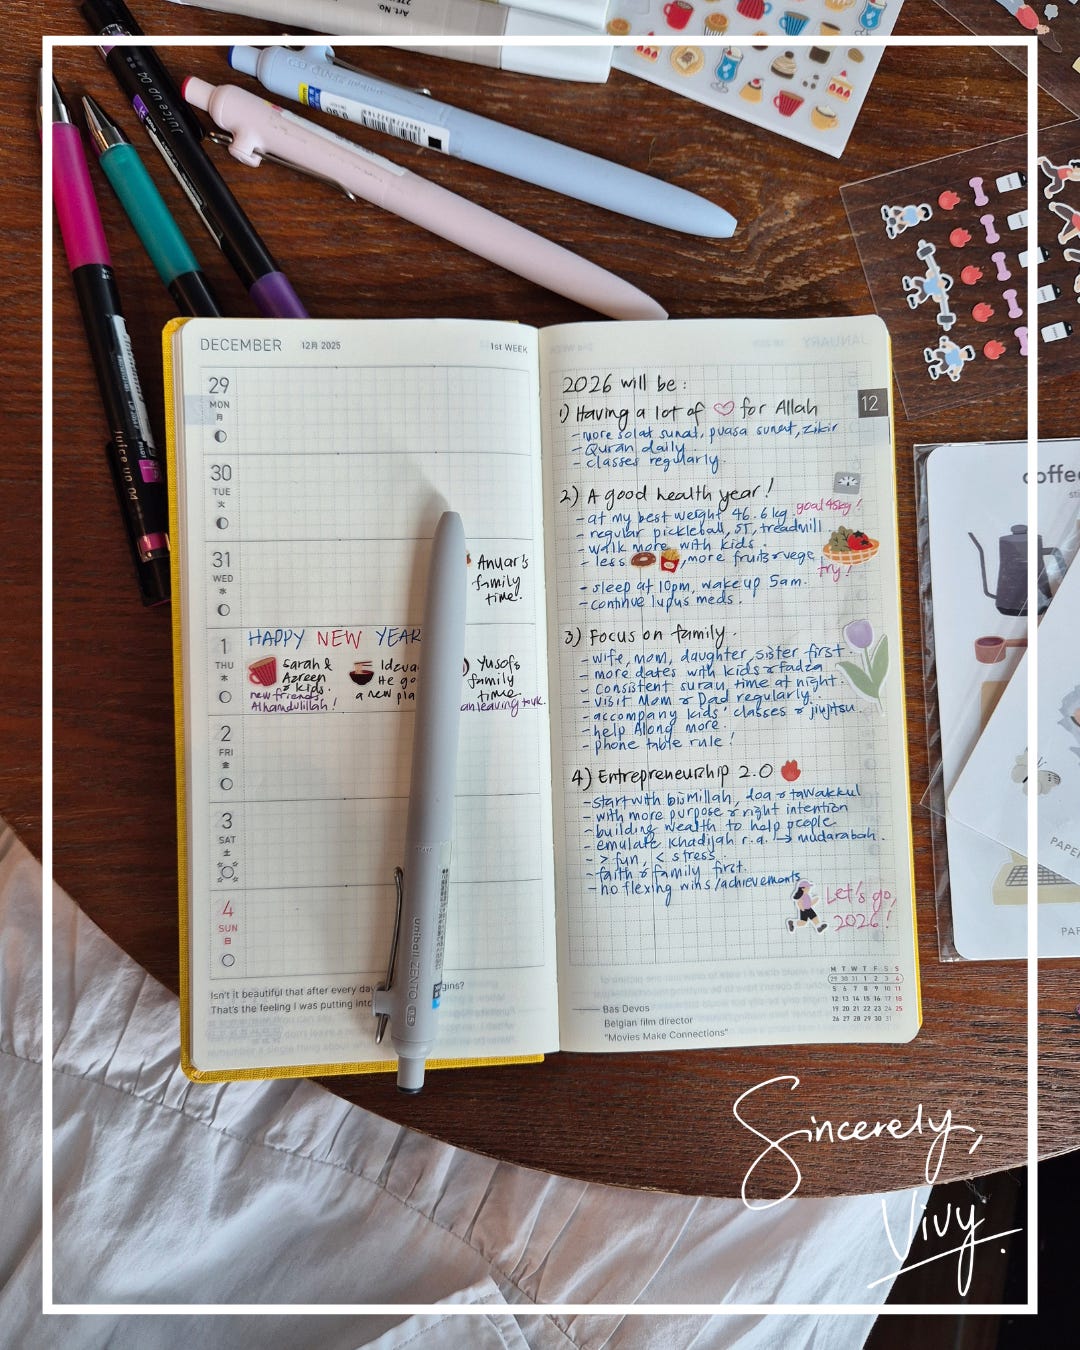 Art. No.
Juice up 04
Juice up 04
coffee
PAPER
PAP
DECEMBER 12月 2025 1st WEEK
29
MON
月
30
TUE
火
31
WED
水
Anuar's
family
time.
1
THU
木
HAPPY NEW YEAR
Sarah &
Azreen
& kids.
new friends,
Alhamdulillah!
He go
a new pla
Yusof's
family
time
2
FRI
金
3
SAT
土
4
SUN
日
Isn't it beautiful that after every day
gins?
That's the feeling I was putting into
uniball ZENTO 0.5
2026 will be:
12
1) Having a lot of ♡ for Allah
- more solat sunat, puasa sunat, zikir
- Quran daily.
- classes regularly.
2) A good health year!
- at my best weight 46.6kg. goal 45kg!
- regular pickleball, ST, treadmill
- walk more with kids.
- less , more fruits & vege
try!
- sleep at 10pm, wake up 5am.
- continue lupus meds.
3) Focus on family.
- wife, mom, daughter, sister first.
- more dates with kids & fadza
- consistent surau, time at night.
- visit Mom & Dad regularly.
- accompany kids' classes & jiujitsu.
- help Along more.
- phone table rule!
4) Entrepreneurship 2.0
- start with bismillah, doa & tawakkul
- with more purpose & right intention
- building wealth to help people
- emulate Khadijah r.a. → mudarabah.
- > fun, < stress
- faith & family first.
- no flexing wins/achievements
Let's go,
2026!
M T W T F S S
29 30 31 1 2 3 4
5 6 7 8 9 10 11
12 13 14 15 16 17 18
19 20 21 22 23 24 25
26 27 28 29 30 31
Bas Devos
Belgian film director
"Movies Make Connections"
Sincerely,
Vivy.